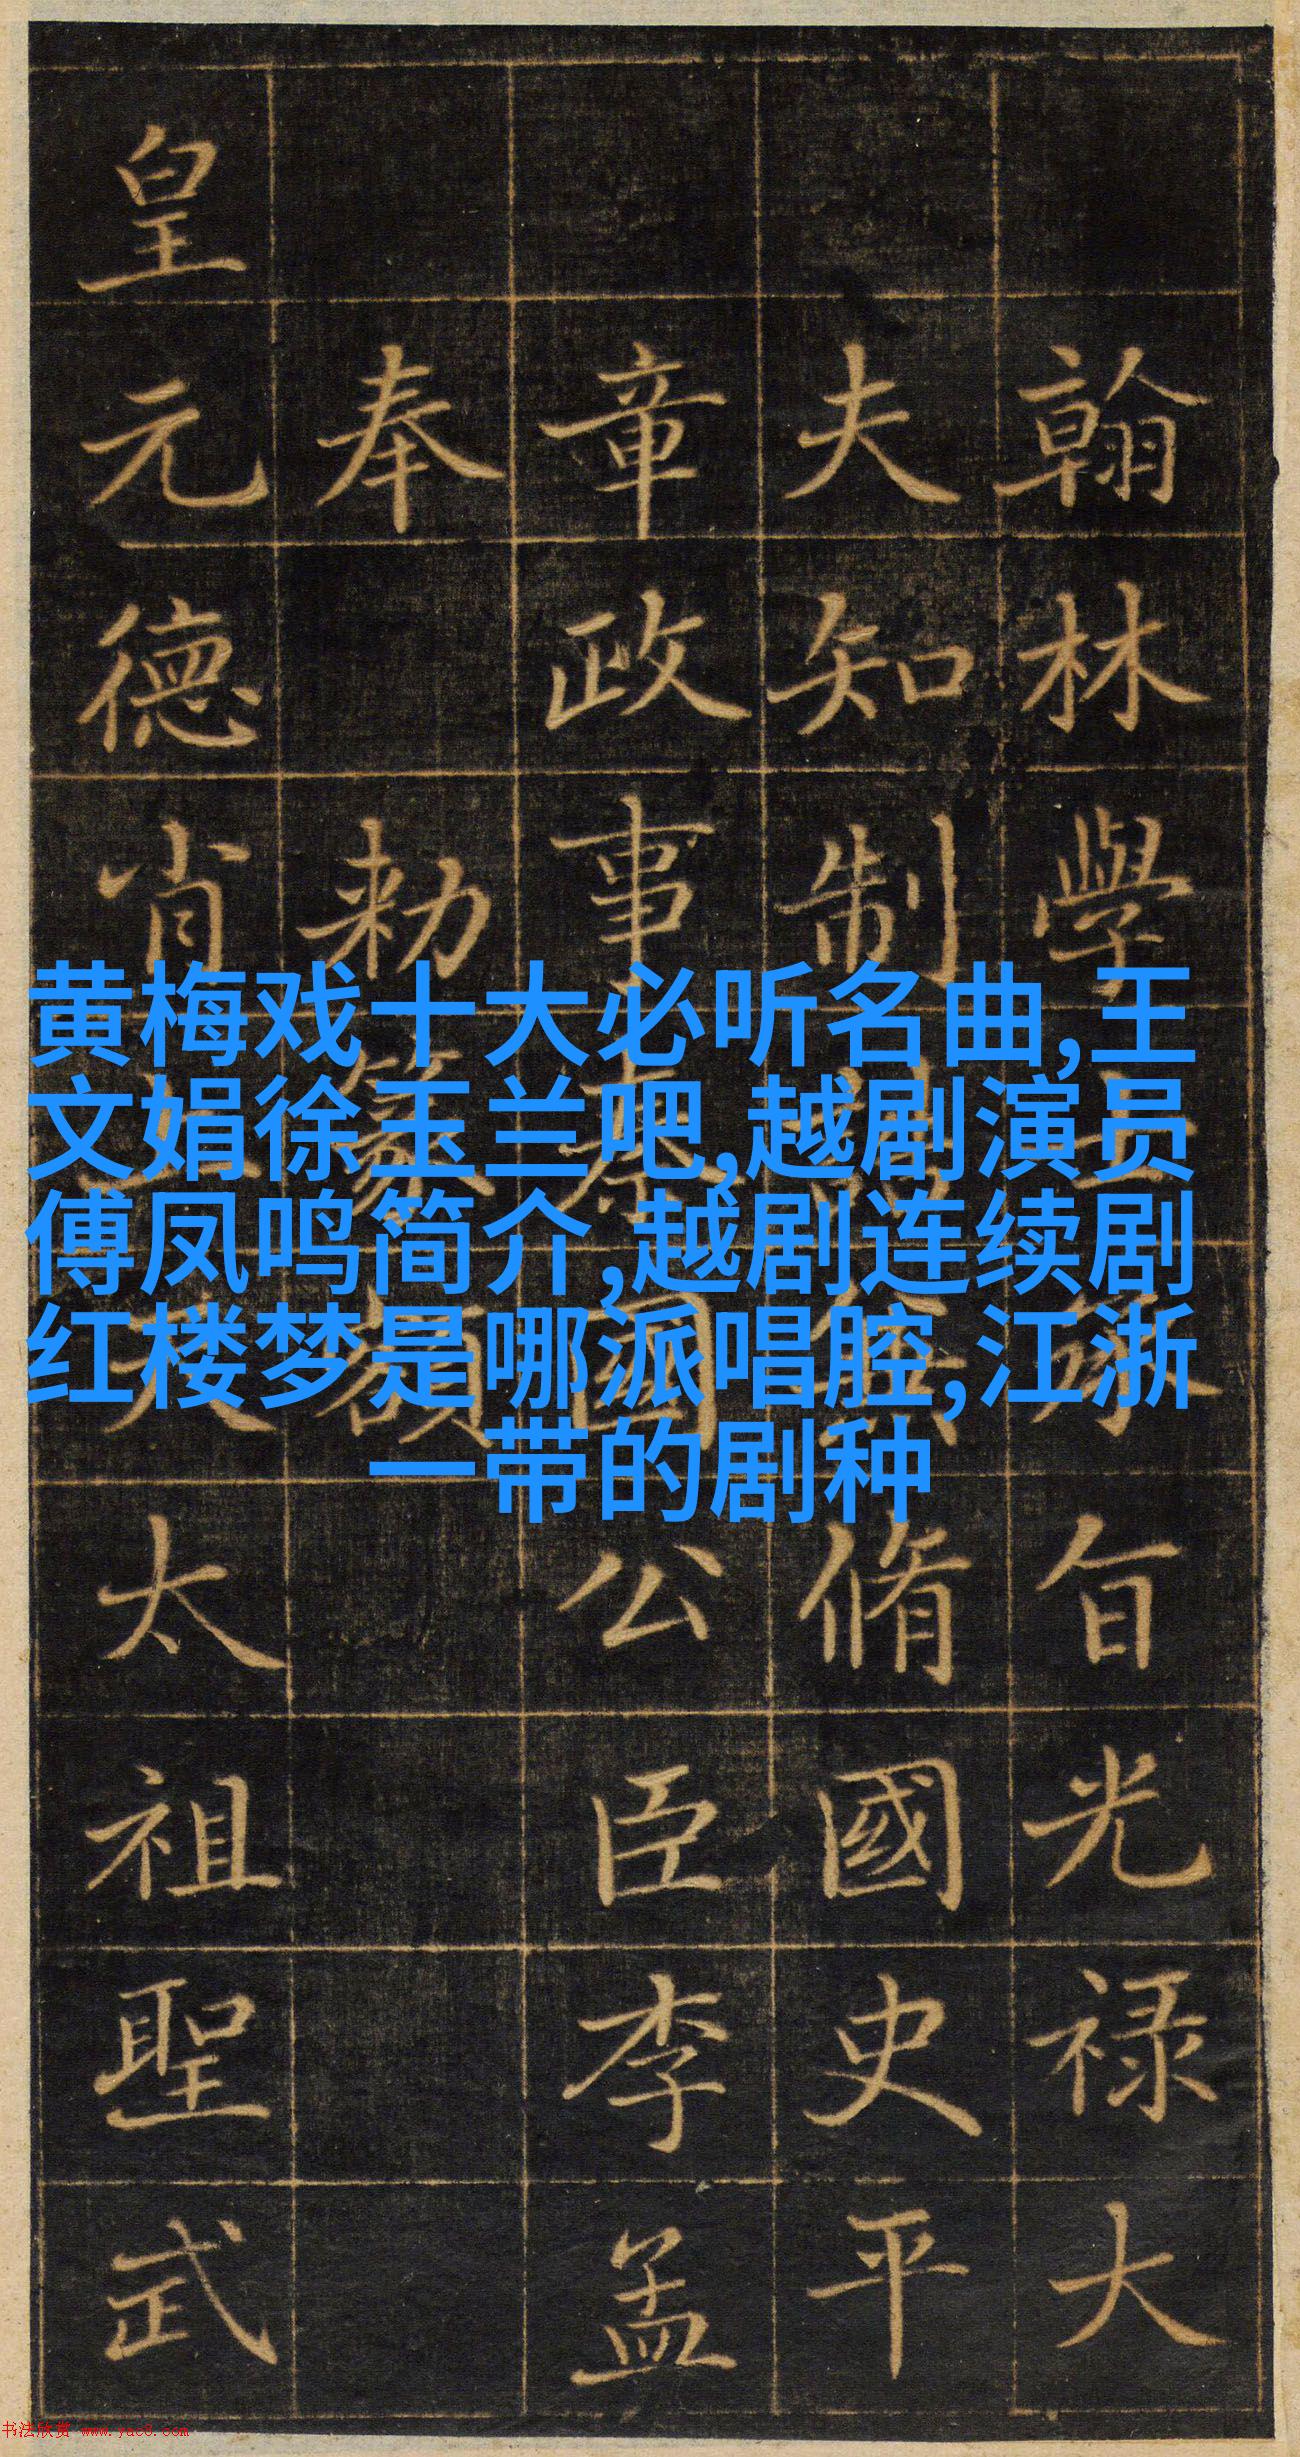 翰林學士承旨光禄大
夫知制誥兼脩國史平
章政事秦國公臣李孟
奉勑篆額
皇元德肖上天太祖聖武
黄梅戏十大必听名曲,王
文娟徐玉兰吧,越剧演员
傅凤鸣简介,越剧连续剧
红楼梦是哪派唱腔,江浙
一带的剧种
书法欣赏 www.yac8.com